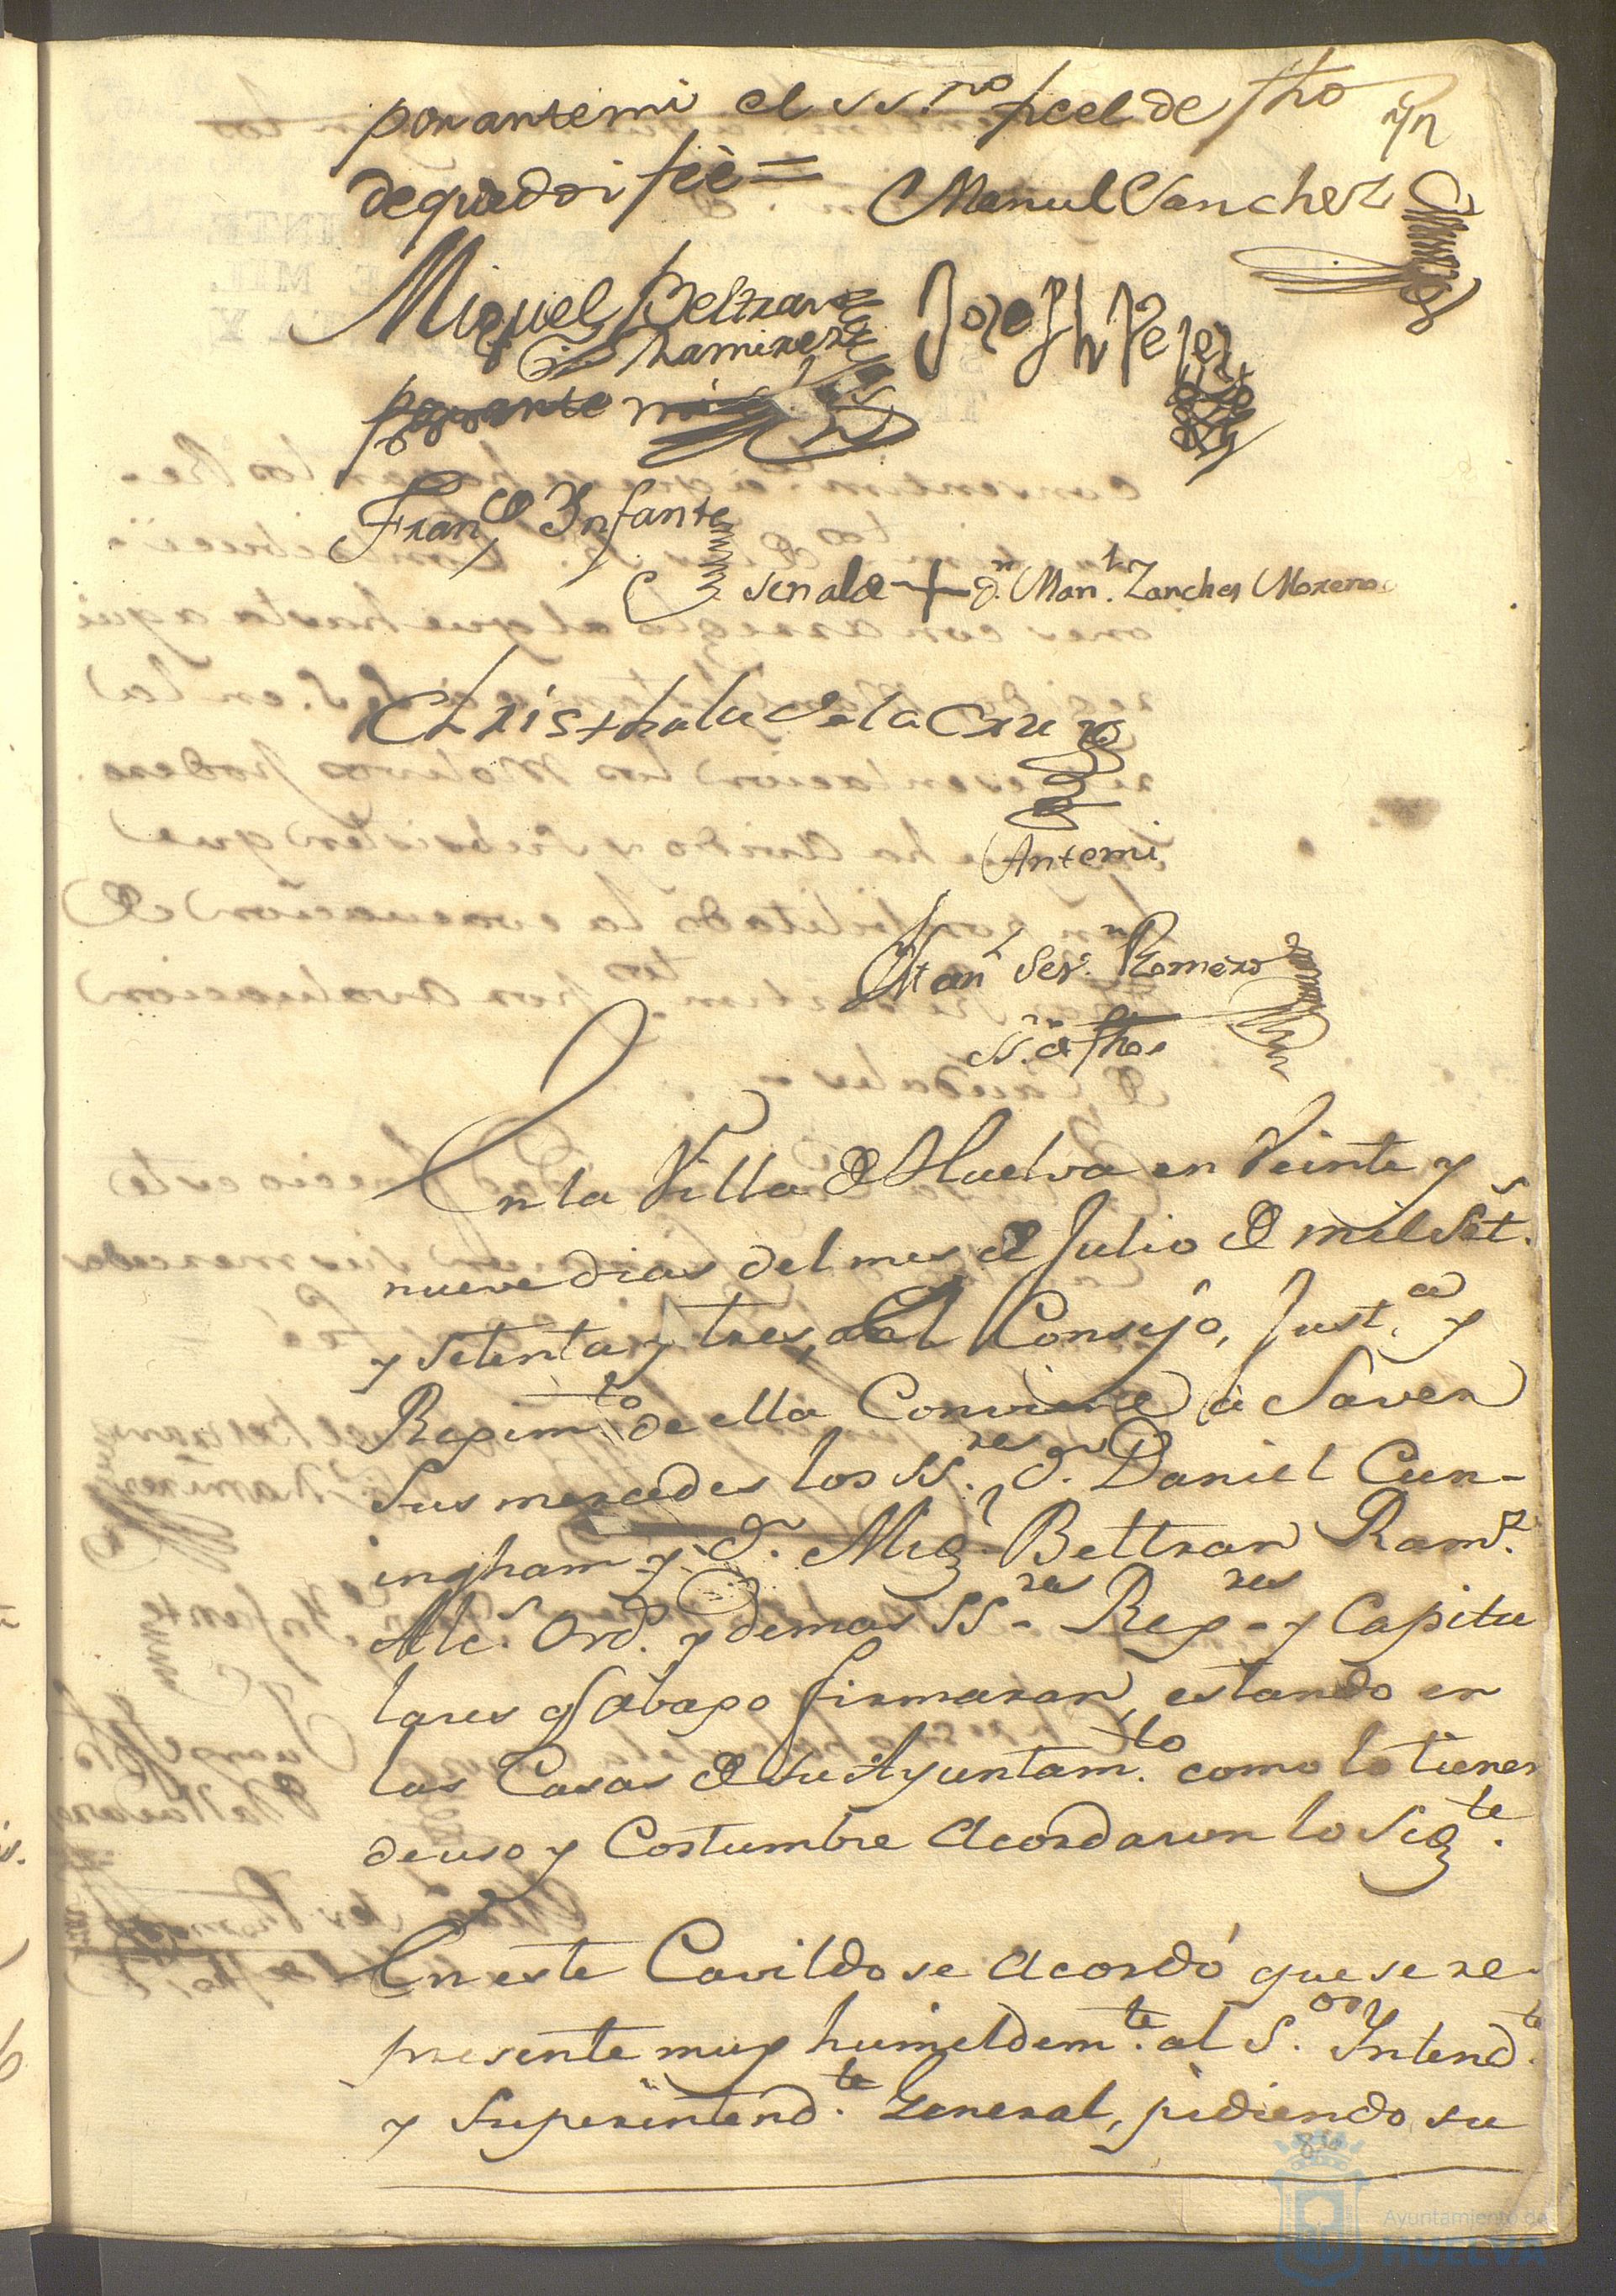 por antemi el ss.no fiel de fho
de que doi feè =
Manuel Sanchez
Miguel Beltran
Ramirez
Joseph Perez
Franco Infante
señal de + Dn. Manl. Zanches Moreno
Christobal de la Cruz
Antemi
Manl Sevn. Romero
SS.no de fho.
En la Villa de Huelva en Veinte y
nueve dias del mes de Julio de mil Sets.
y setenta y tres, el Consejo, Justa. y
Regimto. de ella Conviene à Saver
Sus mercedes los SS.res Dn. Daniel Cun-
ingham y Dn. Migl. Beltran Ramz.
Alcs. Ords. y demas SS.res Regres y Capitu
lares q abajo firmaran, estando en
las Casas de su Ayuntamto. como lo tienen
de uso y Costumbre Acordaron lo Sigte.
En este Cavildo se Acordó que se re-
presente muy humeldemte. al S.or Intendte.
y Superintendte. General, pidiendo su
Ayuntamiento de
HUELVA